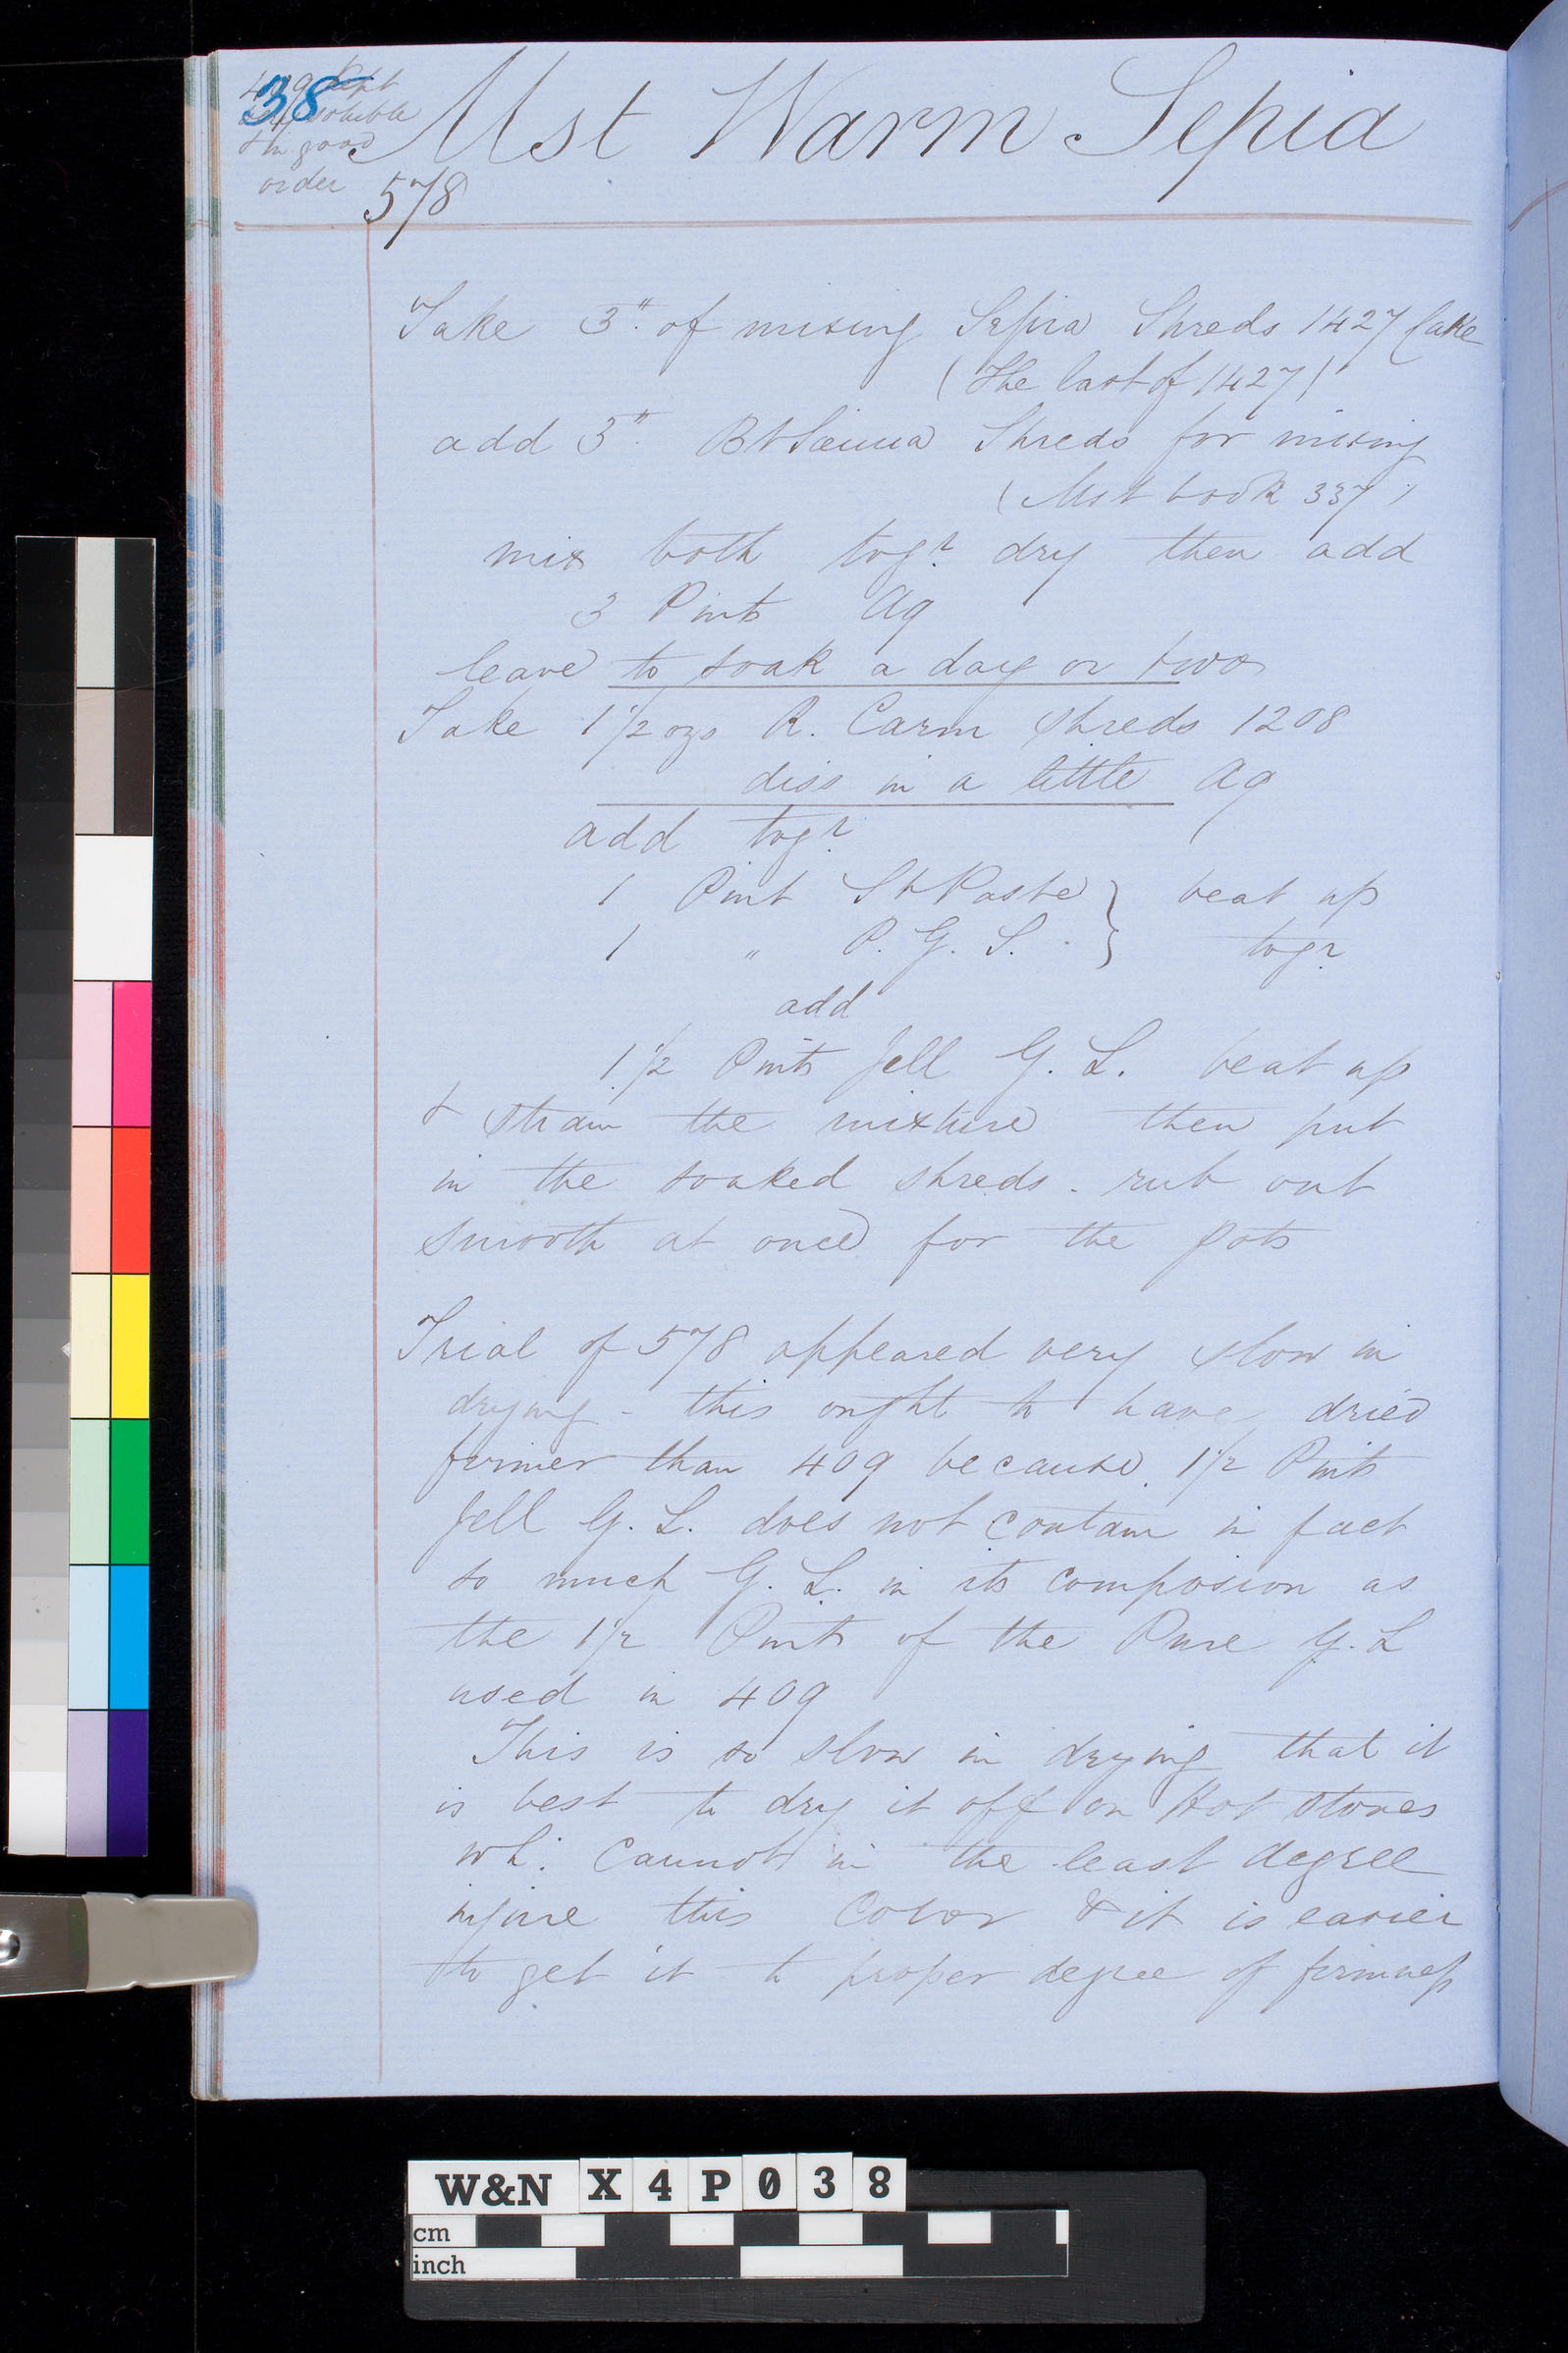 38
409 kept
very soluble
& in good
order
Mst Warm Sepia
578
Take 3". of mixing Sepia Shreds 1427 Cake
(The last of 1427)
add 3". Bt Sienna Shreds for mixing
(Mst book 337)
mix both togr. dry then add
3 Pints Aq
leave to soak a day or two
Take 1 1/2 ozs R. Carm shreds 1208
diss in a little Aq
add togr.
1 Pint St Paste } beat up
1 " P. G. S. } togr.
add
1 1/2 Pints Jell G. L. beat up
& strain the mixture then put
in the soaked shreds. rub out
smooth at once for the Pots
Trial of 578 appeared very slow in
drying - this ought to have dried
firmer than 409 because 1 1/2 Pints
Jell G. L. does not contain in fact
so much G. L. in its composion as
the 1 1/2 Pints of the Pure G. L
used in 409
This is so slow in drying that it
is best to dry it off on Hot stones
wh: cannot in the least degree
injure this Color & it is easier
to get it to proper degree of firmness
W&N X4P038
cm
inch